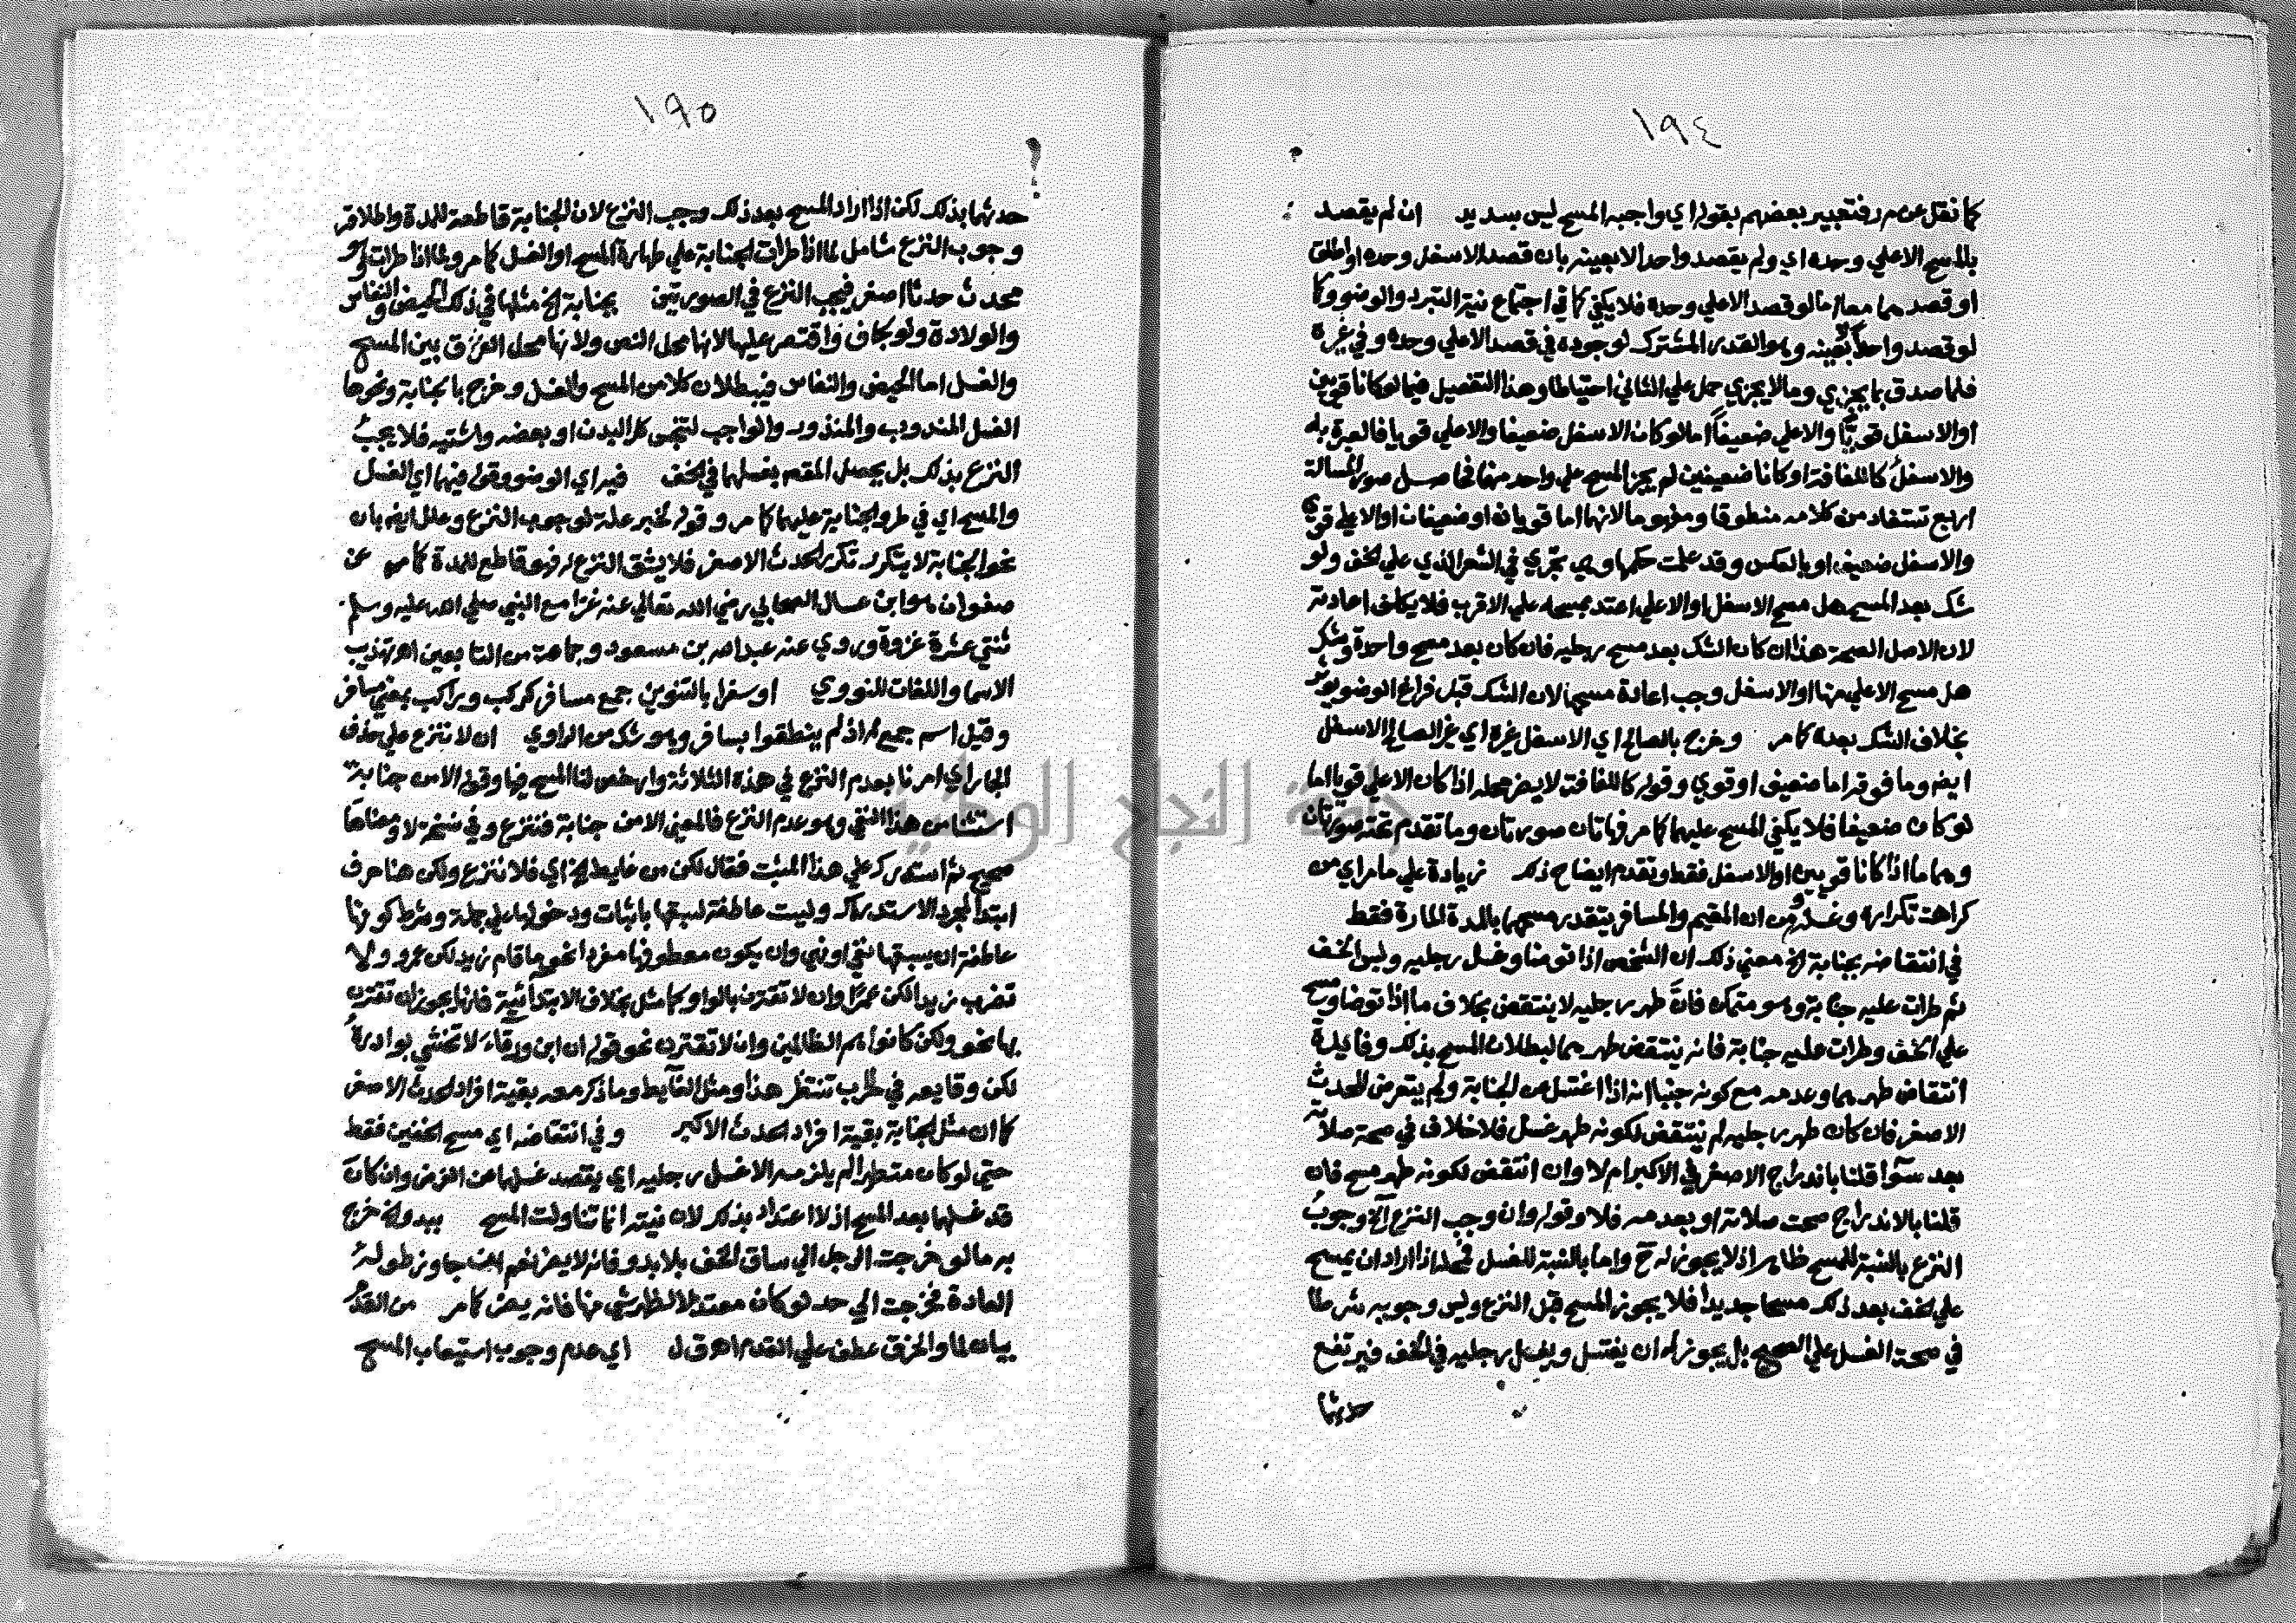 ١٩٤
كما نقل عن م ر فتعبير بعضهم بقوله اي واجبه المسح ليس بسديد ان لم يقصد
بالمسح الاعلي وحده اي ولم يقصد واحدا لا بعينه بان قصد الاسفل وحده او اطلق
او قصدهما معا اما لو قصد الاعلي وحده فلا يكفي كما في اجتماع نية التبرد والوضو وكما
لو قصد واحدا لا بعينه وهو القدر المشترك لوجوده في قصد الاعلي وحده وفي غيره
فلما صدق بما يجزي وما لا يجزي حمل علي الثاني احتياطا وهذا التفصيل فيما لو كانا قويين
او الاسفل قويا والاعلي ضعيفا اما لو كان الاسفل ضعيفا والاعلي قويا فالعبرة به
والاسفل كاللفافة او كانا ضعيفين لم يجز المسح علي واحد منهما فحاصل صور المسالة
اربع تستفاد من كلامه منطوقا ومفهوما لانهما اما قويان او ضعيفان او الاعلي قوي
والاسفل ضعيف او بالعكس وقد علمت حكمها وهي تجزي في الشعر الذي علي الخف ولو
شك بعد المسح هل مسح الاسفل او الاعلي اعتد بمسحه علي الاقرب فلا يكلف اعادته
لان الاصل الصحة هذا ان كان الشك بعد مسح رجليه فان كان بعد مسح واحدة وشك
هل مسح الاعلي منها او الاسفل وجب اعادة مسحها لان الشك قبل فراغ الوضو يوثر
بخلاف الشك بعده كما مر وخرج بالصالح اي الاسفل غيره اي غير الصالح الاسفل
ايض وما فوقه اما ضعيف او قوي وقوله كاللفافة لا يض محله اذا كان الاعلي قويا اما
لو كان ضعيفا فلا يكفي المسح عليهما كما مر فهاتان صورتان وما تقدم تحته صورتان
وهما ما اذا كانا قويين او الاسفل فقط وتقدم ايضاح ذلك زيادة علي ما مر اي من
كراهة تكراره وغسله ومن ان المقيم والمسافر يتقدر مسحهما بالمدة المارة فقط
في انتقاضه بجنابة الخ معني ذلك ان الشخص اذا توضا وغسل رجليه ولبس الخف
ثم طرات عليه جنابة وهو متمكن فان طهر رجليه لا ينتقض بخلاف ما اذا توضا ومسح
علي الخف وطرات عليه جنابة فانه ينتقض طهرهما لبطلان المسح بذلك وفايدة
انتقاض طهرهما وعدمه مع كونه جنبا انه اذا اغتسل من الجنابة ولم يتعرض للحدث
الاصغر فان كان طهر رجليه لم ينتقض لكونه طهر غسل فلا خلاف في صحة صلاته
بعد سوا قلنا باندراج الاصغر في الاكبر ام لا وان انتقض لكونه طهر مسح فان
قلنا بالاندراج صحت صلاته او بعدمه فلا وقوله وان وجب النزع الخ وجوب
النزع بالنسبة للمسح ظاهر اذ لا يجوز له ح واما بالنسبة للغسل فمحله اذا اراد ان يمسح
علي الخف بعد ذلك مسحا جديدا فلا يجوز المسح قبل النزع وليس وجوبه شرطا
في صحة الغسل علي الصحيح بل يجوز له ان يغتسل ويغسل رجليه في الخف فيرتفع
حدثهما
١٩٥
حدثهما بذلك لكن اذا اراد المسح بعد ذلك وجب النزع لان الجنابة قاطعة للمدة واطلاقه
وجوب النزع شامل لما اذا طرات الجنابة علي طهارة المسح او الغسل كما مر ولما اذا طرات وهو
محدث حدثا اصغر فيجب النزع في الصورتين بجنابة الخ مثلها في ذلك الحيض والنفاس
والولادة ولو بجفاف واقتصر عليها لانها محل النص ولانها محل الفرق بين المسح
والغسل اما الحيض والنفاس فيبطلان كلا من المسح والغسل وخرج بالجنابة ونحوها
الغسل المندوب والمنذور والواجب لتنجس كل البدن او بعضه واشتبه فلا يجب
النزع بذلك بل يحصل المقص بغسلها في الخف فيه اي الوضو وقوله فيهما اي الغسل
والمسح اي في طرو الجنابة عليهما كما مر وقوله لخبر علة لوجوب النزع وعلل ايض بان
نحو الجنابة لا يتكرر تكرر الحدث الاصغر فلا يشق النزع له فهو قاطع للمدة كما مر عن
صفوان هو ابن عسال الصحابي رضي الله تعالي عنه غزا مع النبي صلي الله عليه وسلم
ثنتي عشرة غزوة وروي عنه عبد الله بن مسعود وجماعة من التابعين اهـ تهذيب
الاسما واللغات للنووي او سفرا بالتنوين جمع مسافر كركب وراكب بمعني مسافر
وقيل اسم جمع له اذ لم ينطقوا بسافر وهو شك من الراوي ان لا ننزع علي حذف
الجار اي امرنا بعدم النزع في هذه الثلاثة وارخص لنا المسح فيها وقوله الا من جنابة
استثنا من هذا النفي وهو عدم النزع فالمعني الا من جنابة فننزع وفي نسخة لا ومعناها
صحيح ثم استدرك علي هذا المثبت فقال لكن من غايط الخ اي فلا ننزع ولكن هنا حرف
ابتدا لمجرد الاستدراك وليست عاطفة لسبقها باثبات ودخولها علي جملة وشرط كونها
عاطفة ان يسبقها نفي او نهي وان يكون معطوفها مفردا نحو ما قام زيد لكن عمرو ولا
تضرب زيدا لكن عمرا وان لا تقترن بالواو كما مثل بخلاف الابتدائية فانها يجوز ان تقترن
بها نحو ولكن كانوا هم الظالمين وان لا تقترن نحو قوله ان ابن ورقاء لا تخشي بوادره
لكن وقايعه في الحرب تنتظر هذا ومثل الغايط وما ذكر معه بقية افراد الحدث الاصغر
كما ان مثل الجنابة بقية افراد الحدث الاكبر وفي انتقاضه اي مسح الخفين فقط
حتي لو كان متطهرا لم يلزمه الا غسل رجليه اي يقصد غسلهما عن الفرض وان كان
قد غسلهما بعد المسح اذ لا اعتداد بذلك لان نيته انما تناولت المسح ببدو الخ خرج
به ما لو خرجت الرجل الي ساق الخف بلا بدو فانه لا يض نعم ان جاوز طوله
العادة فخرجت الي حد لو كان معتدلا لظهر شي منها فانه يض كما مر من القدم
بيان لما والخرق عطف علي القدم اهـ ق ل اي عدم وجوب استيعاب المسح